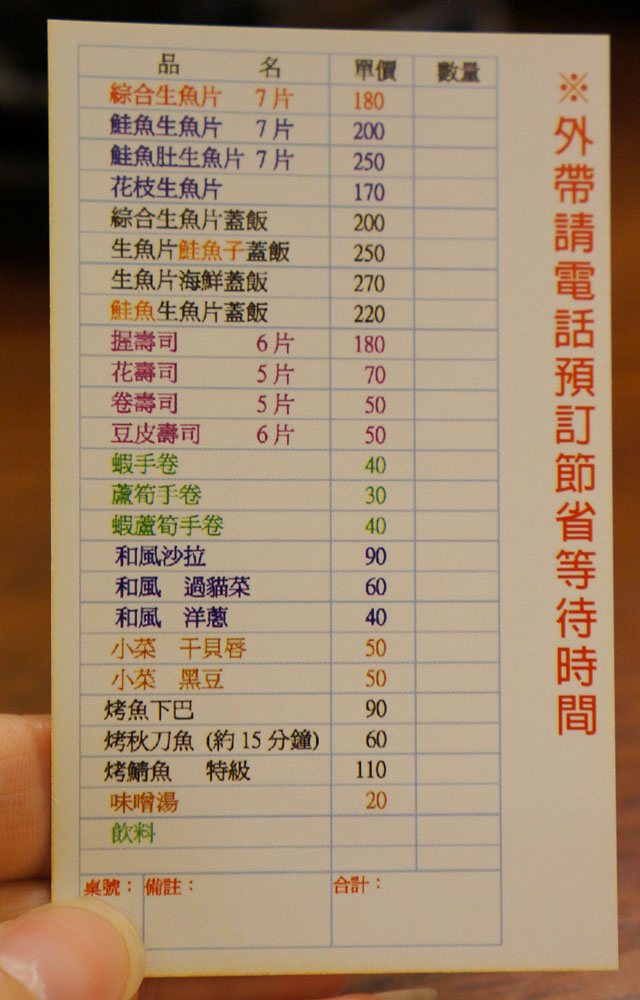 品 名 單價 數量
綜合生魚片 7片 180
鮭魚生魚片 7片 200
鮭魚肚生魚片 7片 250
花枝生魚片 170
綜合生魚片蓋飯 200
生魚片鮭魚子蓋飯 250
生魚片海鮮蓋飯 270
鮭魚生魚片蓋飯 220
握壽司 6片 180
花壽司 5片 70
卷壽司 5片 50
豆皮壽司 6片 50
蝦手卷 40
蘆筍手卷 30
蝦蘆筍手卷 40
和風沙拉 90
和風 過貓菜 60
和風 洋蔥 40
小菜 干貝唇 50
小菜 黑豆 50
烤魚下巴 90
烤秋刀魚 (約15分鐘) 60
烤鯖魚 特級 110
味噌湯 20
飲料
桌號： 備註： 合計：
※外帶請電話預訂節省等待時間